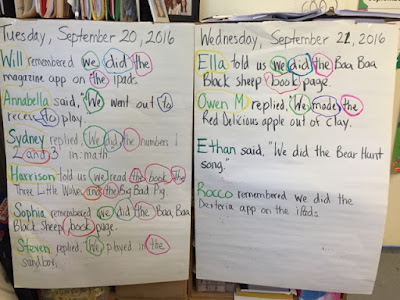 Tuesday, September 20, 2016
Will remembered we did the
magazine app on the ipads.
Annabella said, "We went out to
recess to play.
Sydney replied, We did the numbers 1
2 and 3 in math.
Harrison told us we read the book the
Three Little Wolves and the Big Bad Pig.
Sophia remembered we did the Baa, Baa,
Black Sheep book page.
Steven replied, We played in the
sandbox.
Wednesday, September 21, 2016
Ella told us we did the Baa Baa
Black sheep book page.
Owen M replied, We made the
Red Delicious apple out of clay.
Ethan said, "We did the Bear Hunt
song."
Rocco remembered we did the
Dexteria app on the iPads.